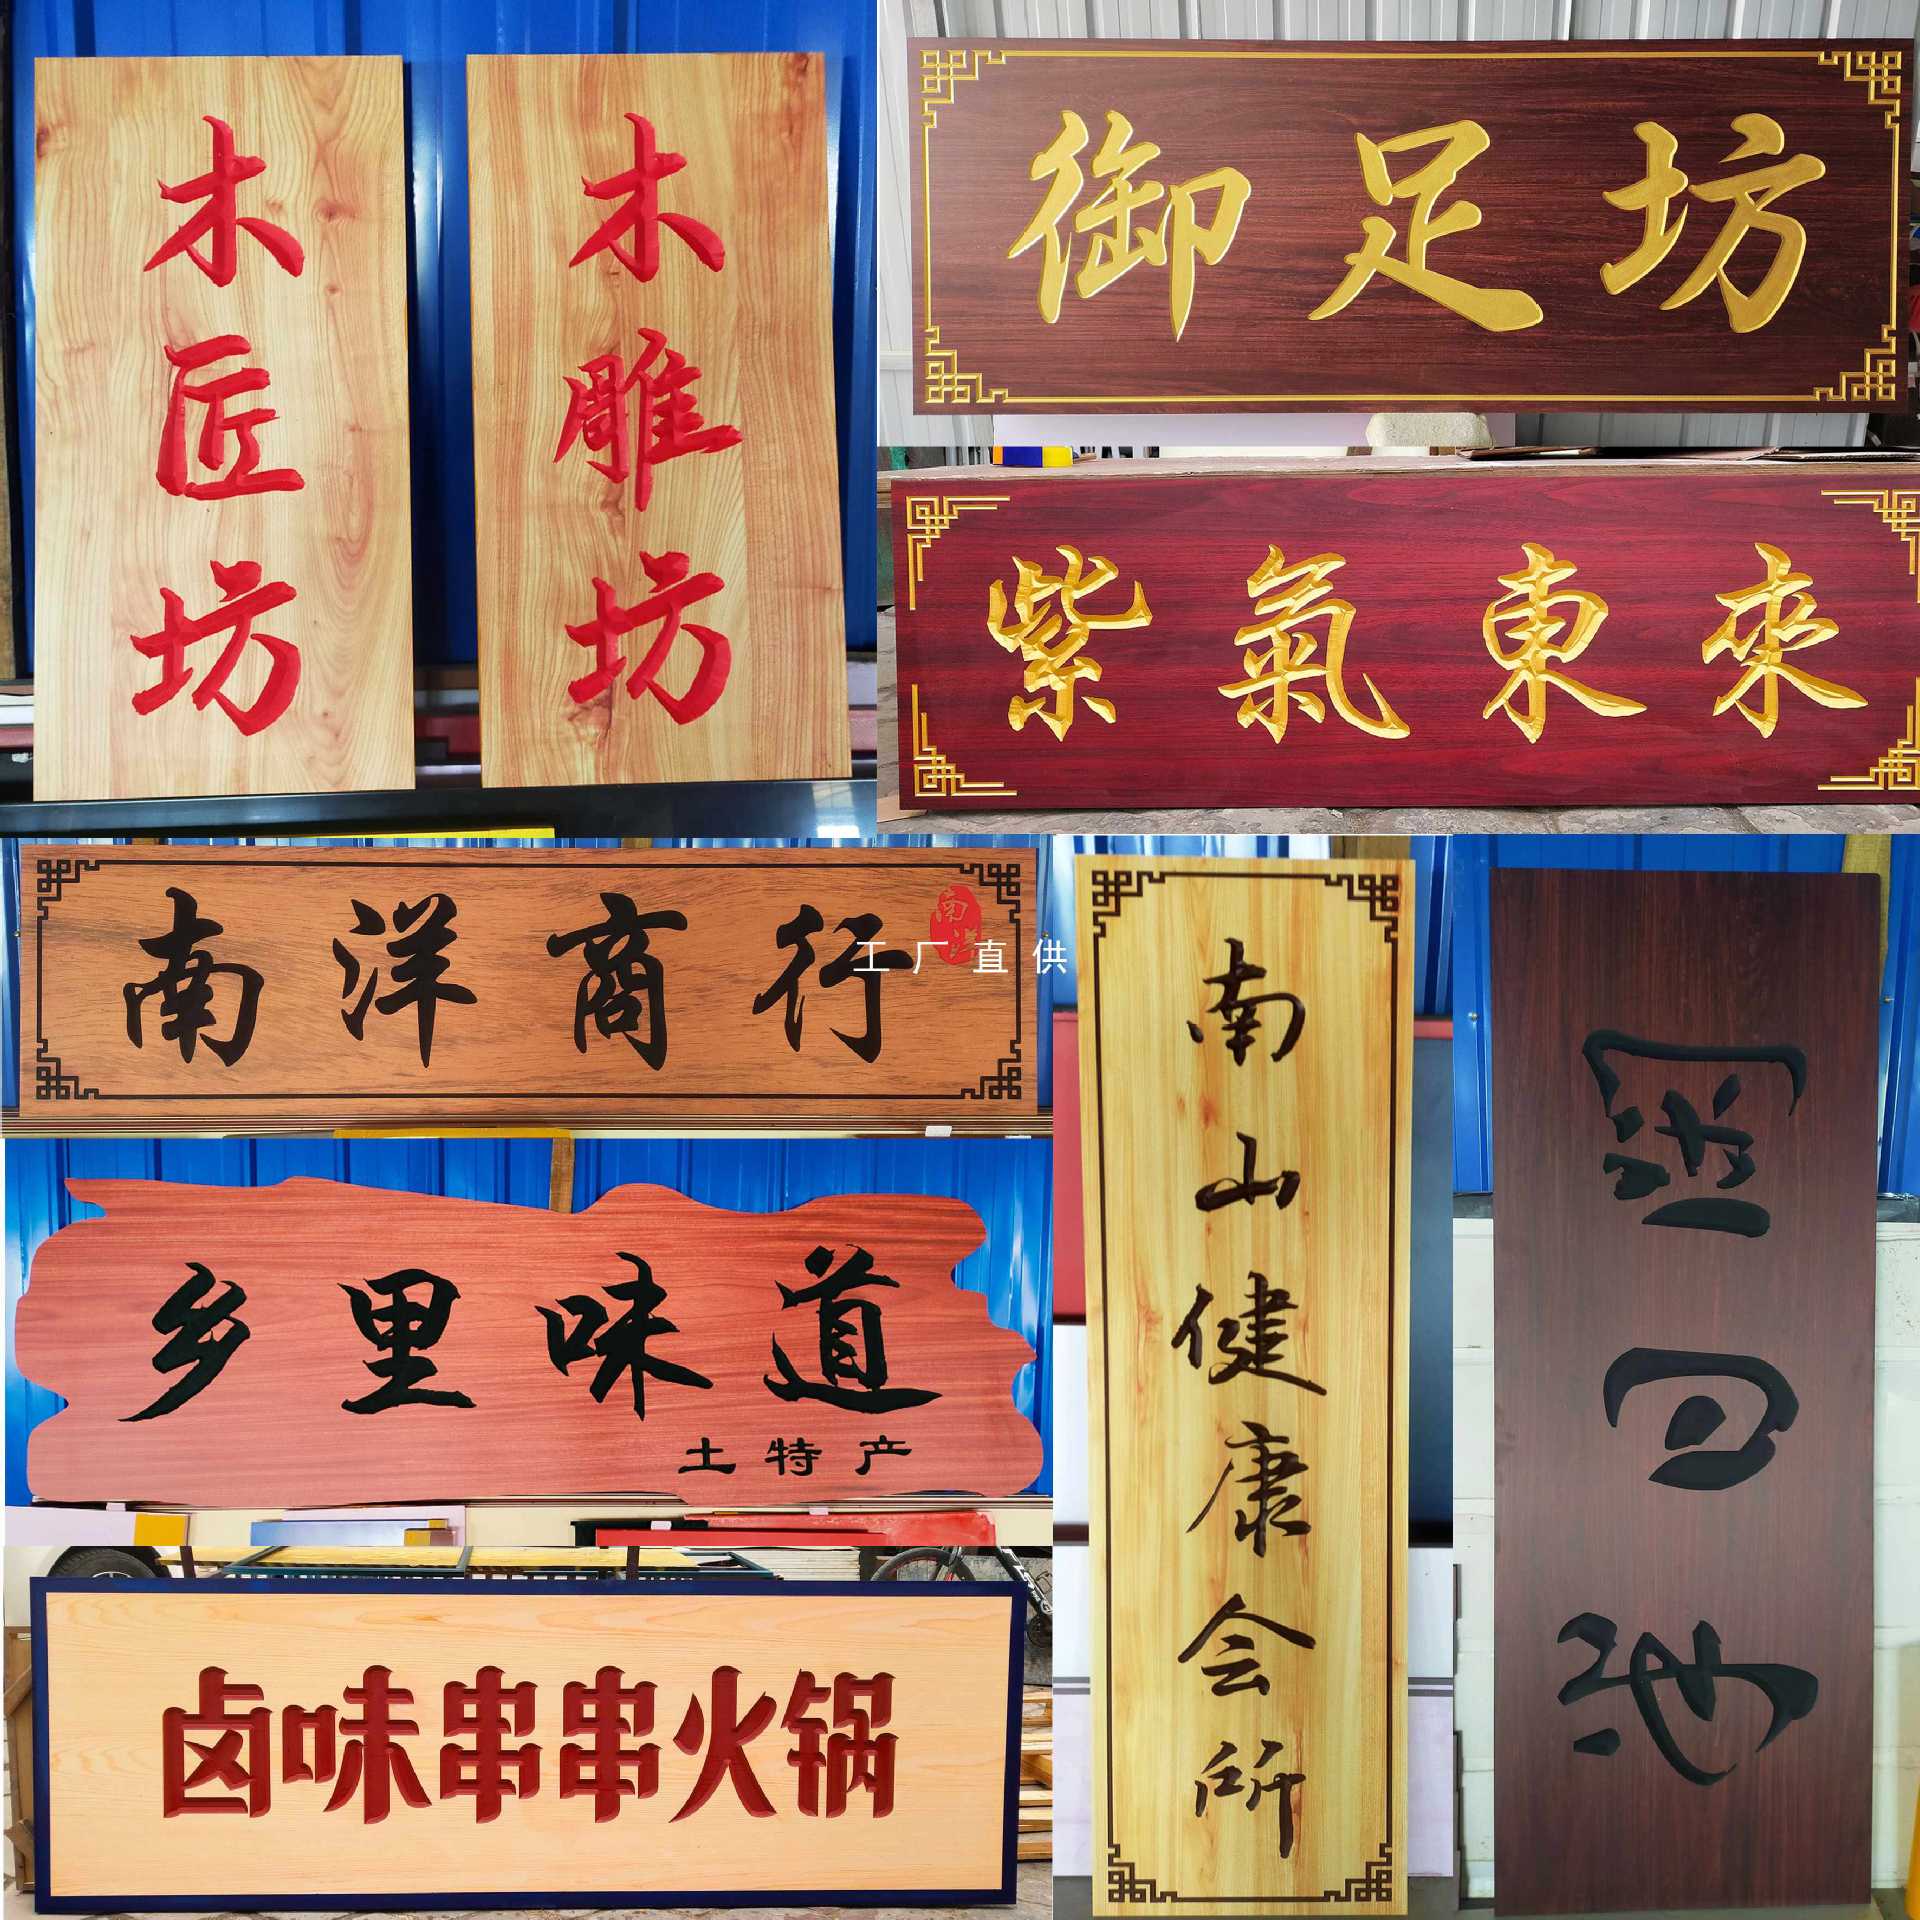 木匠坊
木雕坊
御足坊
紫氣東來
南洋商行
南洋
工厂直供
乡里味道
土特产
卤味串串火锅
南山健康会所
墨四池